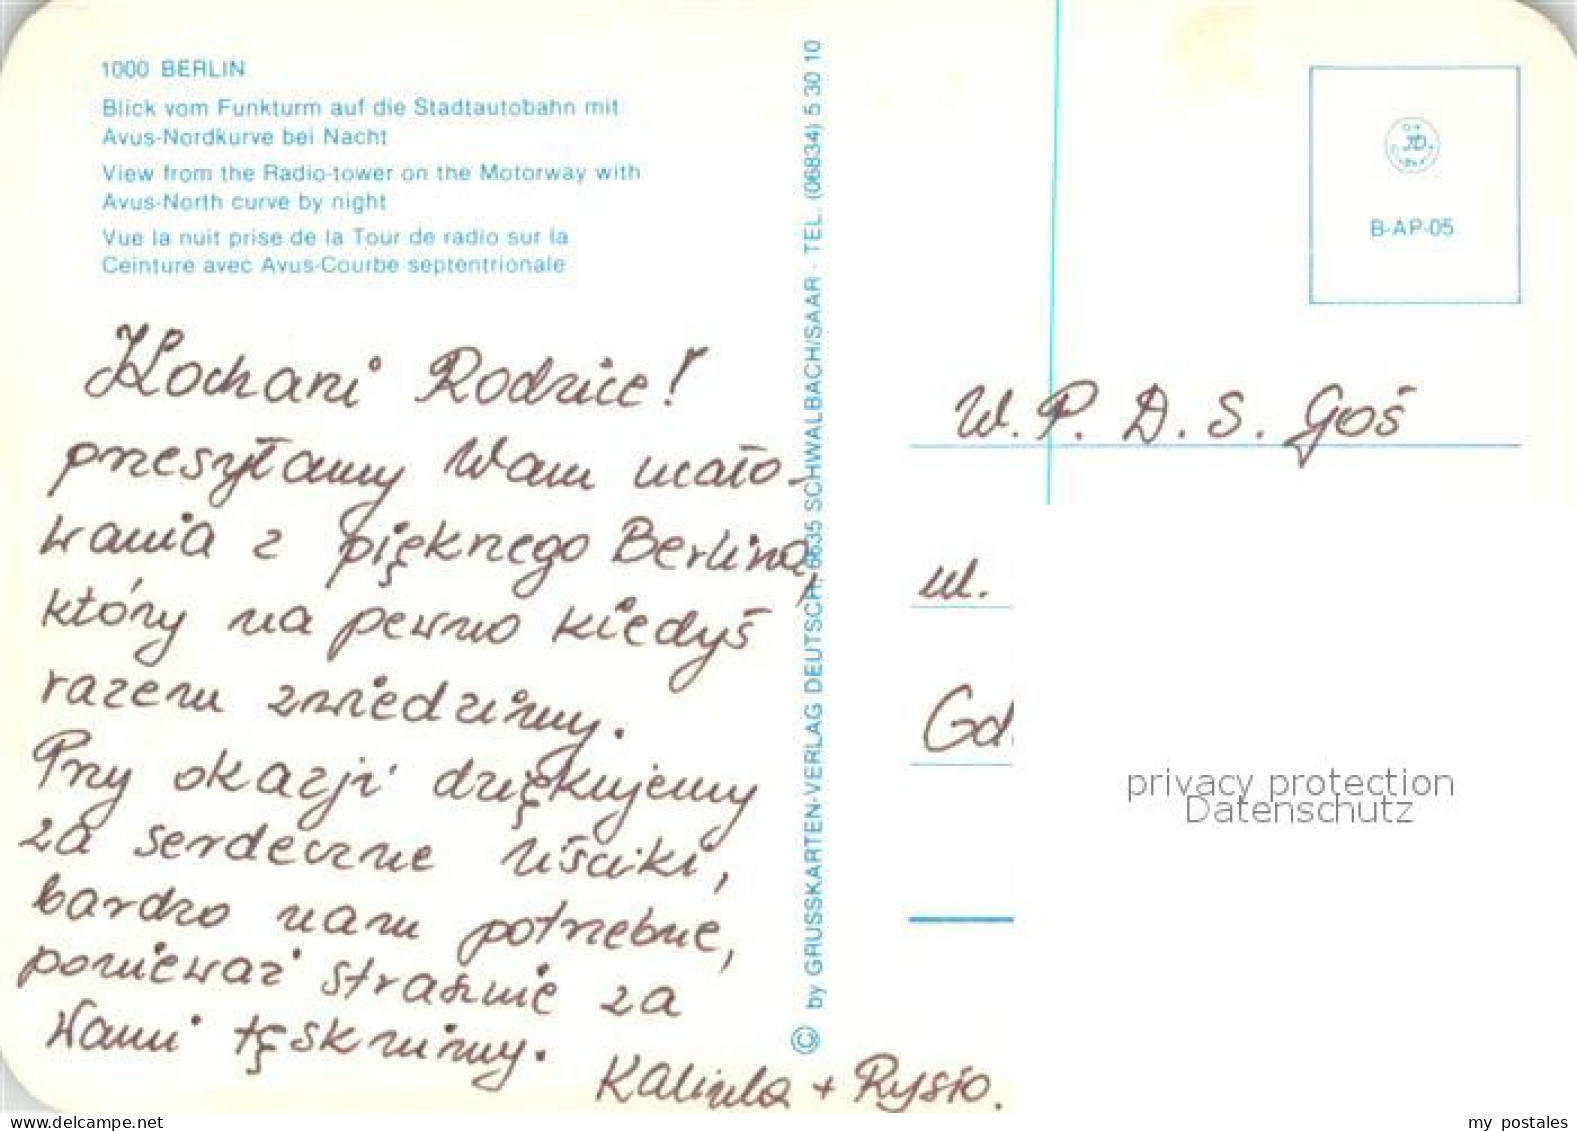 1000 BERLIN
Blick vom Funkturm auf die Stadtautobahn mit
Avus-Nordkurve bei Nacht
View from the Radio-tower on the Motorway with
Avus-North curve by night
Vue la nuit prise de la Tour de radio sur la
Ceinture avec Avus-Courbe septentrionale
Kochani Rodzice!
przesyłamy Wam ucało-
wania z pięknego Berlina,
który na pewno kiedyś
razem zwiedzimy.
Przy okazji dziękujemy
za serdeczne uściki,
bardzo nam potrzebne,
ponieważ strasznie za
Wami tęsknimy.
Kalinka + Rysio.
© by GRUSSKARTEN-VERLAG DEUTSCH, 6635 SCHWALBACH/SAAR · TEL. (06834) 5 30 10
B-AP-05
W. P. D. S. Goś
ul.
Gd
privacy protection
Datenschutz
www.delcampe.net
my postales